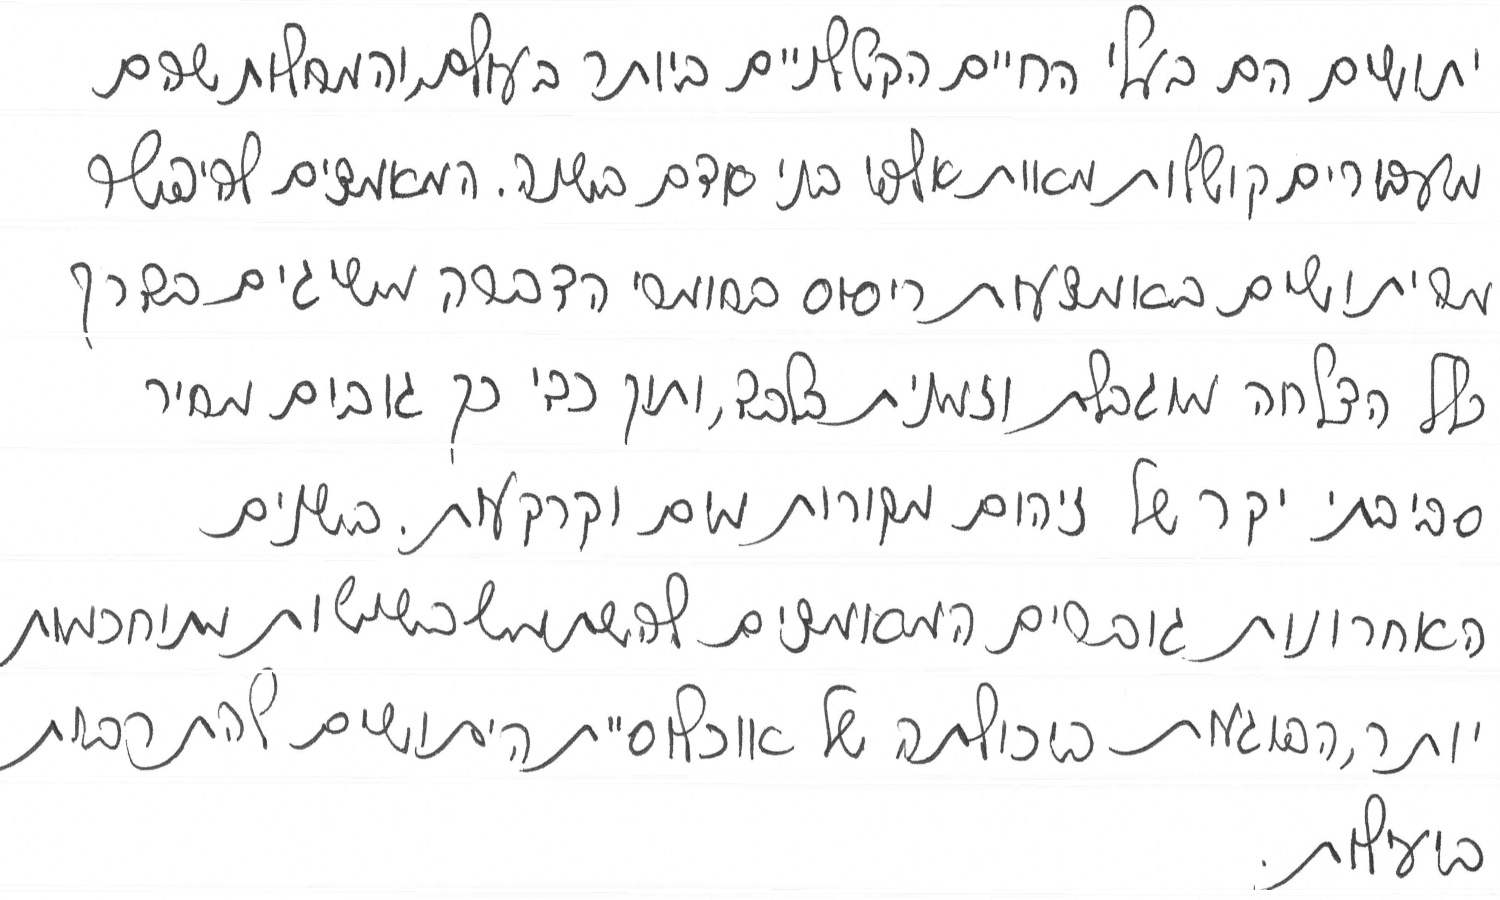 יתושים הם בעלי החיים הקטלניים ביותר בעולם, והמחלות שהם
מעבירים קוטלות מאות אלפי בני אדם בשנה. המאמצים להיפטר
מהיתושים באמצעות ריסוס בחומרי הדברה משיגים בדרך
כלל הצלחה מוגבלת וזמנית בלבד, ותוך כדי כך גובים מחיר
סביבתי יקר של זיהום מקורות מים וקרקעות. בשנים
האחרונות גוברים המאמצים להשתמש בשיטות מתוחכמות
יותר, הפוגעות ביכולתה של אוכלוסיית היתושים להתרבות
ביעילות.